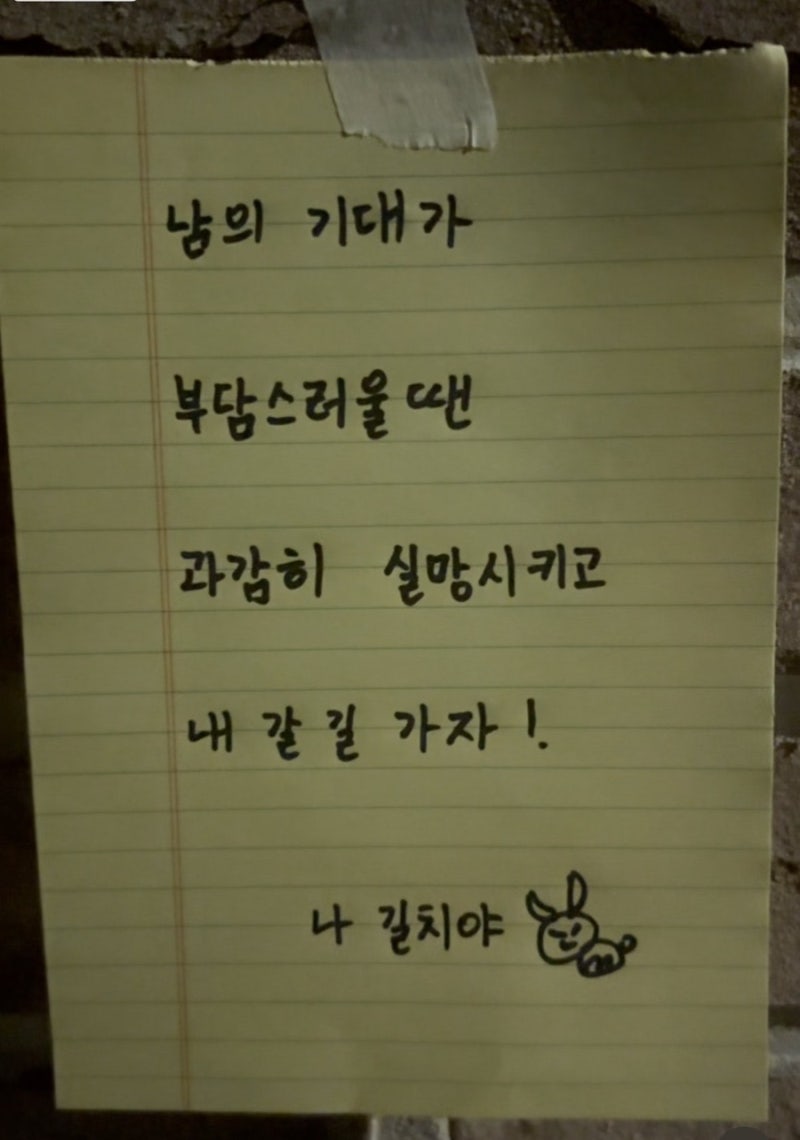 남의 기대가
부담스러울 땐
과감히 실망시키고
내 갈 길 가자!
나 길치야